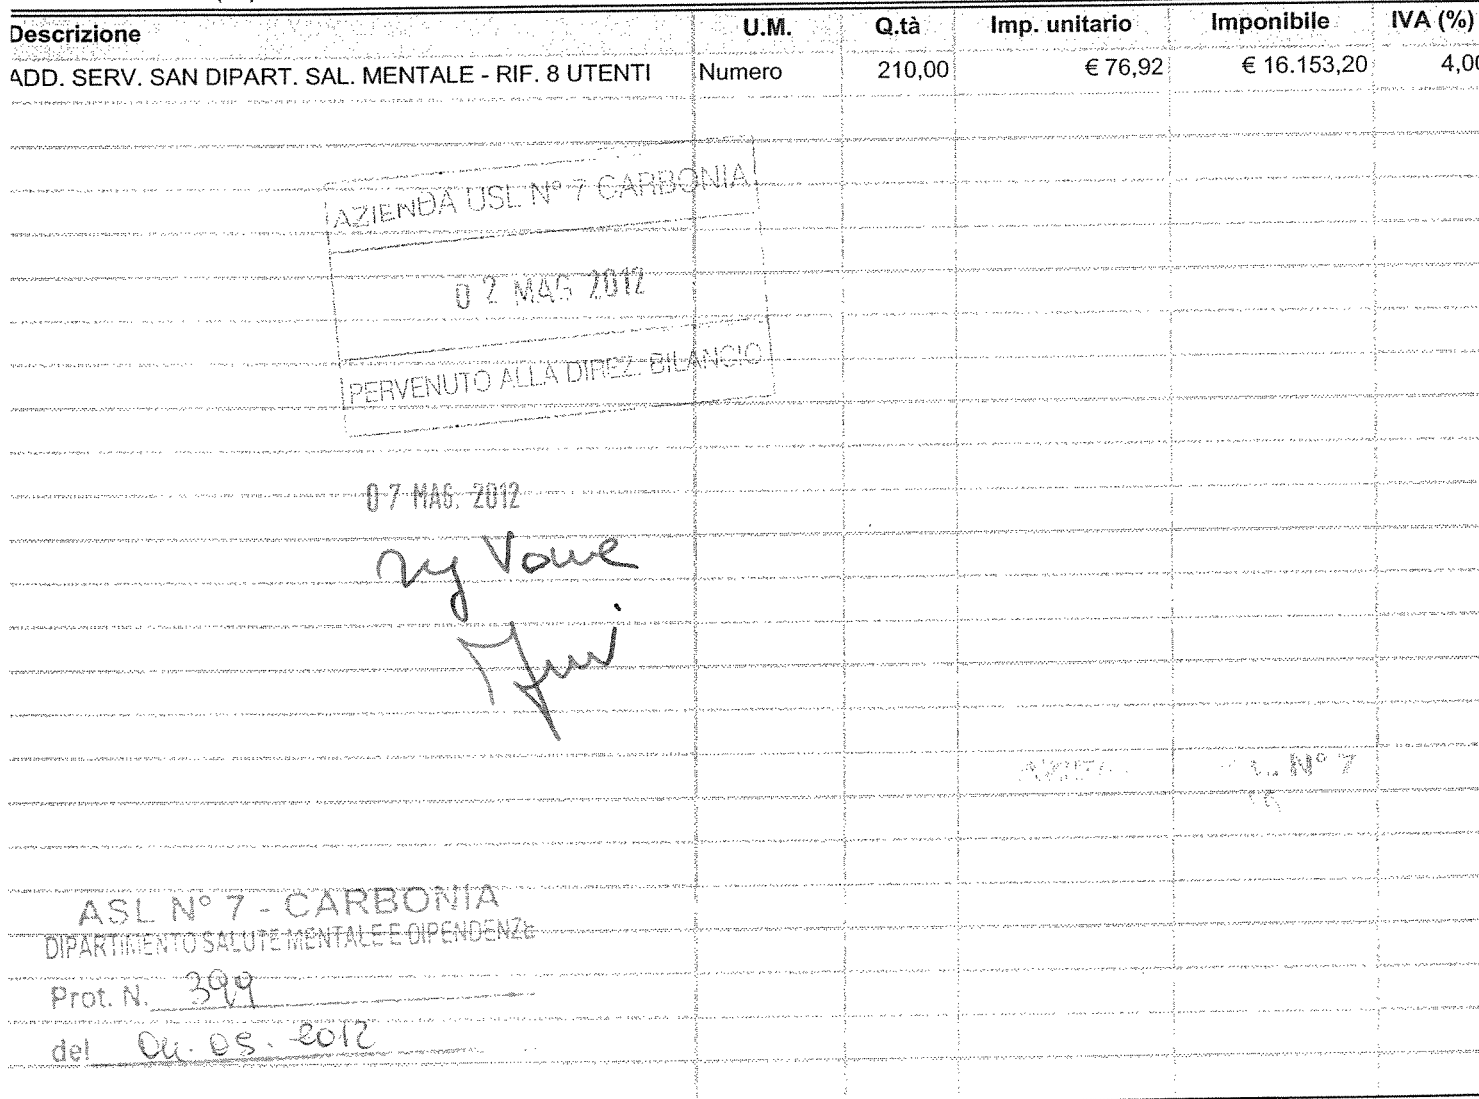 Descrizione U.M. Q.tà Imp. unitario Imponibile IVA (%)
ADD. SERV. SAN DIPART. SAL. MENTALE - RIF. 8 UTENTI Numero 210,00 € 76,92 € 16.153,20 4,00
AZIENDA USL N° 7 CARBONIA
02 MAG 2012
PERVENUTO ALLA DIREZ. BILANCIO
07 MAG. 2012
N° 7
ASL N° 7 - CARBONIA
DIPARTIMENTO SALUTE MENTALE E DIPENDENZE
Prot. N. 399
del 04.05.2012